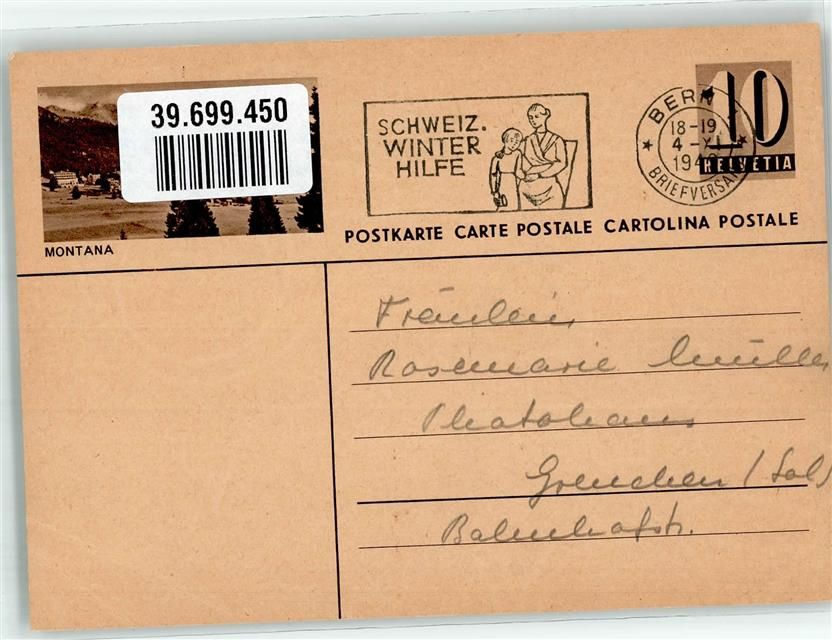 39.699.450
MONTANA
SCHWEIZ.
WINTER
HILFE
BERN
18-19
4-XI
BRIEFVERSAND
10
HELVETIA
POSTKARTE CARTE POSTALE CARTOLINA POSTALE
Fräulein,
Rosemarie Müller
Photohaus
Grenchen / Sol
Bahnhofstr.